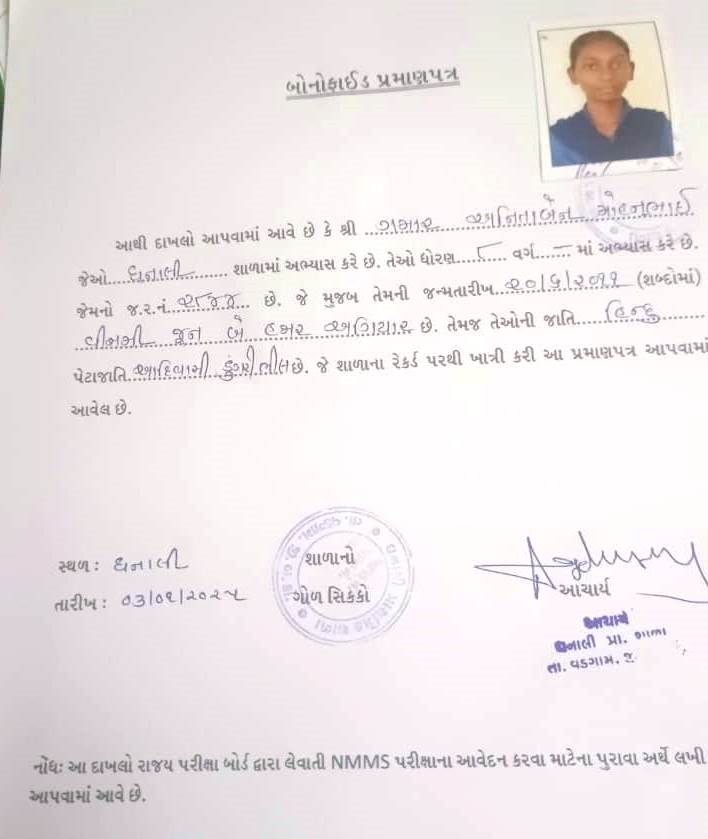 બોનોફાઈડ પ્રમાણપત્ર
આથી દાખલો આપવામાં આવે છે કે શ્રી ગમાર અનિતાબેન મોહનભાઈ
જેઓ ધનાલી શાળામાં અભ્યાસ કરે છે. તેઓ ધોરણ ૮ વર્ગ - માં અભ્યાસ કરે છે.
જેમનો જ.ર.નં ૨૮૪૪ છે. જે મુજબ તેમની જન્મતારીખ ૨૦/૬/૨૦૧૧ (શબ્દોમાં)
વીસમી જૂન બે હજાર અગિયાર છે. તેમજ તેઓની જાતિ હિન્દુ
પેટાજાતિ આદિવાસી ડુંગરી ભીલ છે. જે શાળાના રેકર્ડ પરથી ખાત્રી કરી આ પ્રમાણપત્ર આપવામાં
આવેલ છે.
શાળાનો
સ્થળ : ધનાલી
આચાર્ય
તારીખ : ૦૩/૦૧/૨૦૨૫
ગોળ સિક્કો
આચાર્ય
ધનાલી પ્રા. શાળા
તા. વડગામ.
નોંધઃ આ દાખલો રાજય પરીક્ષા બોર્ડ દ્વારા લેવાતી NMMS પરીક્ષાના આવેદન કરવા માટેના પુરાવા અર્થે લખી
આપવામાં આવે છે.